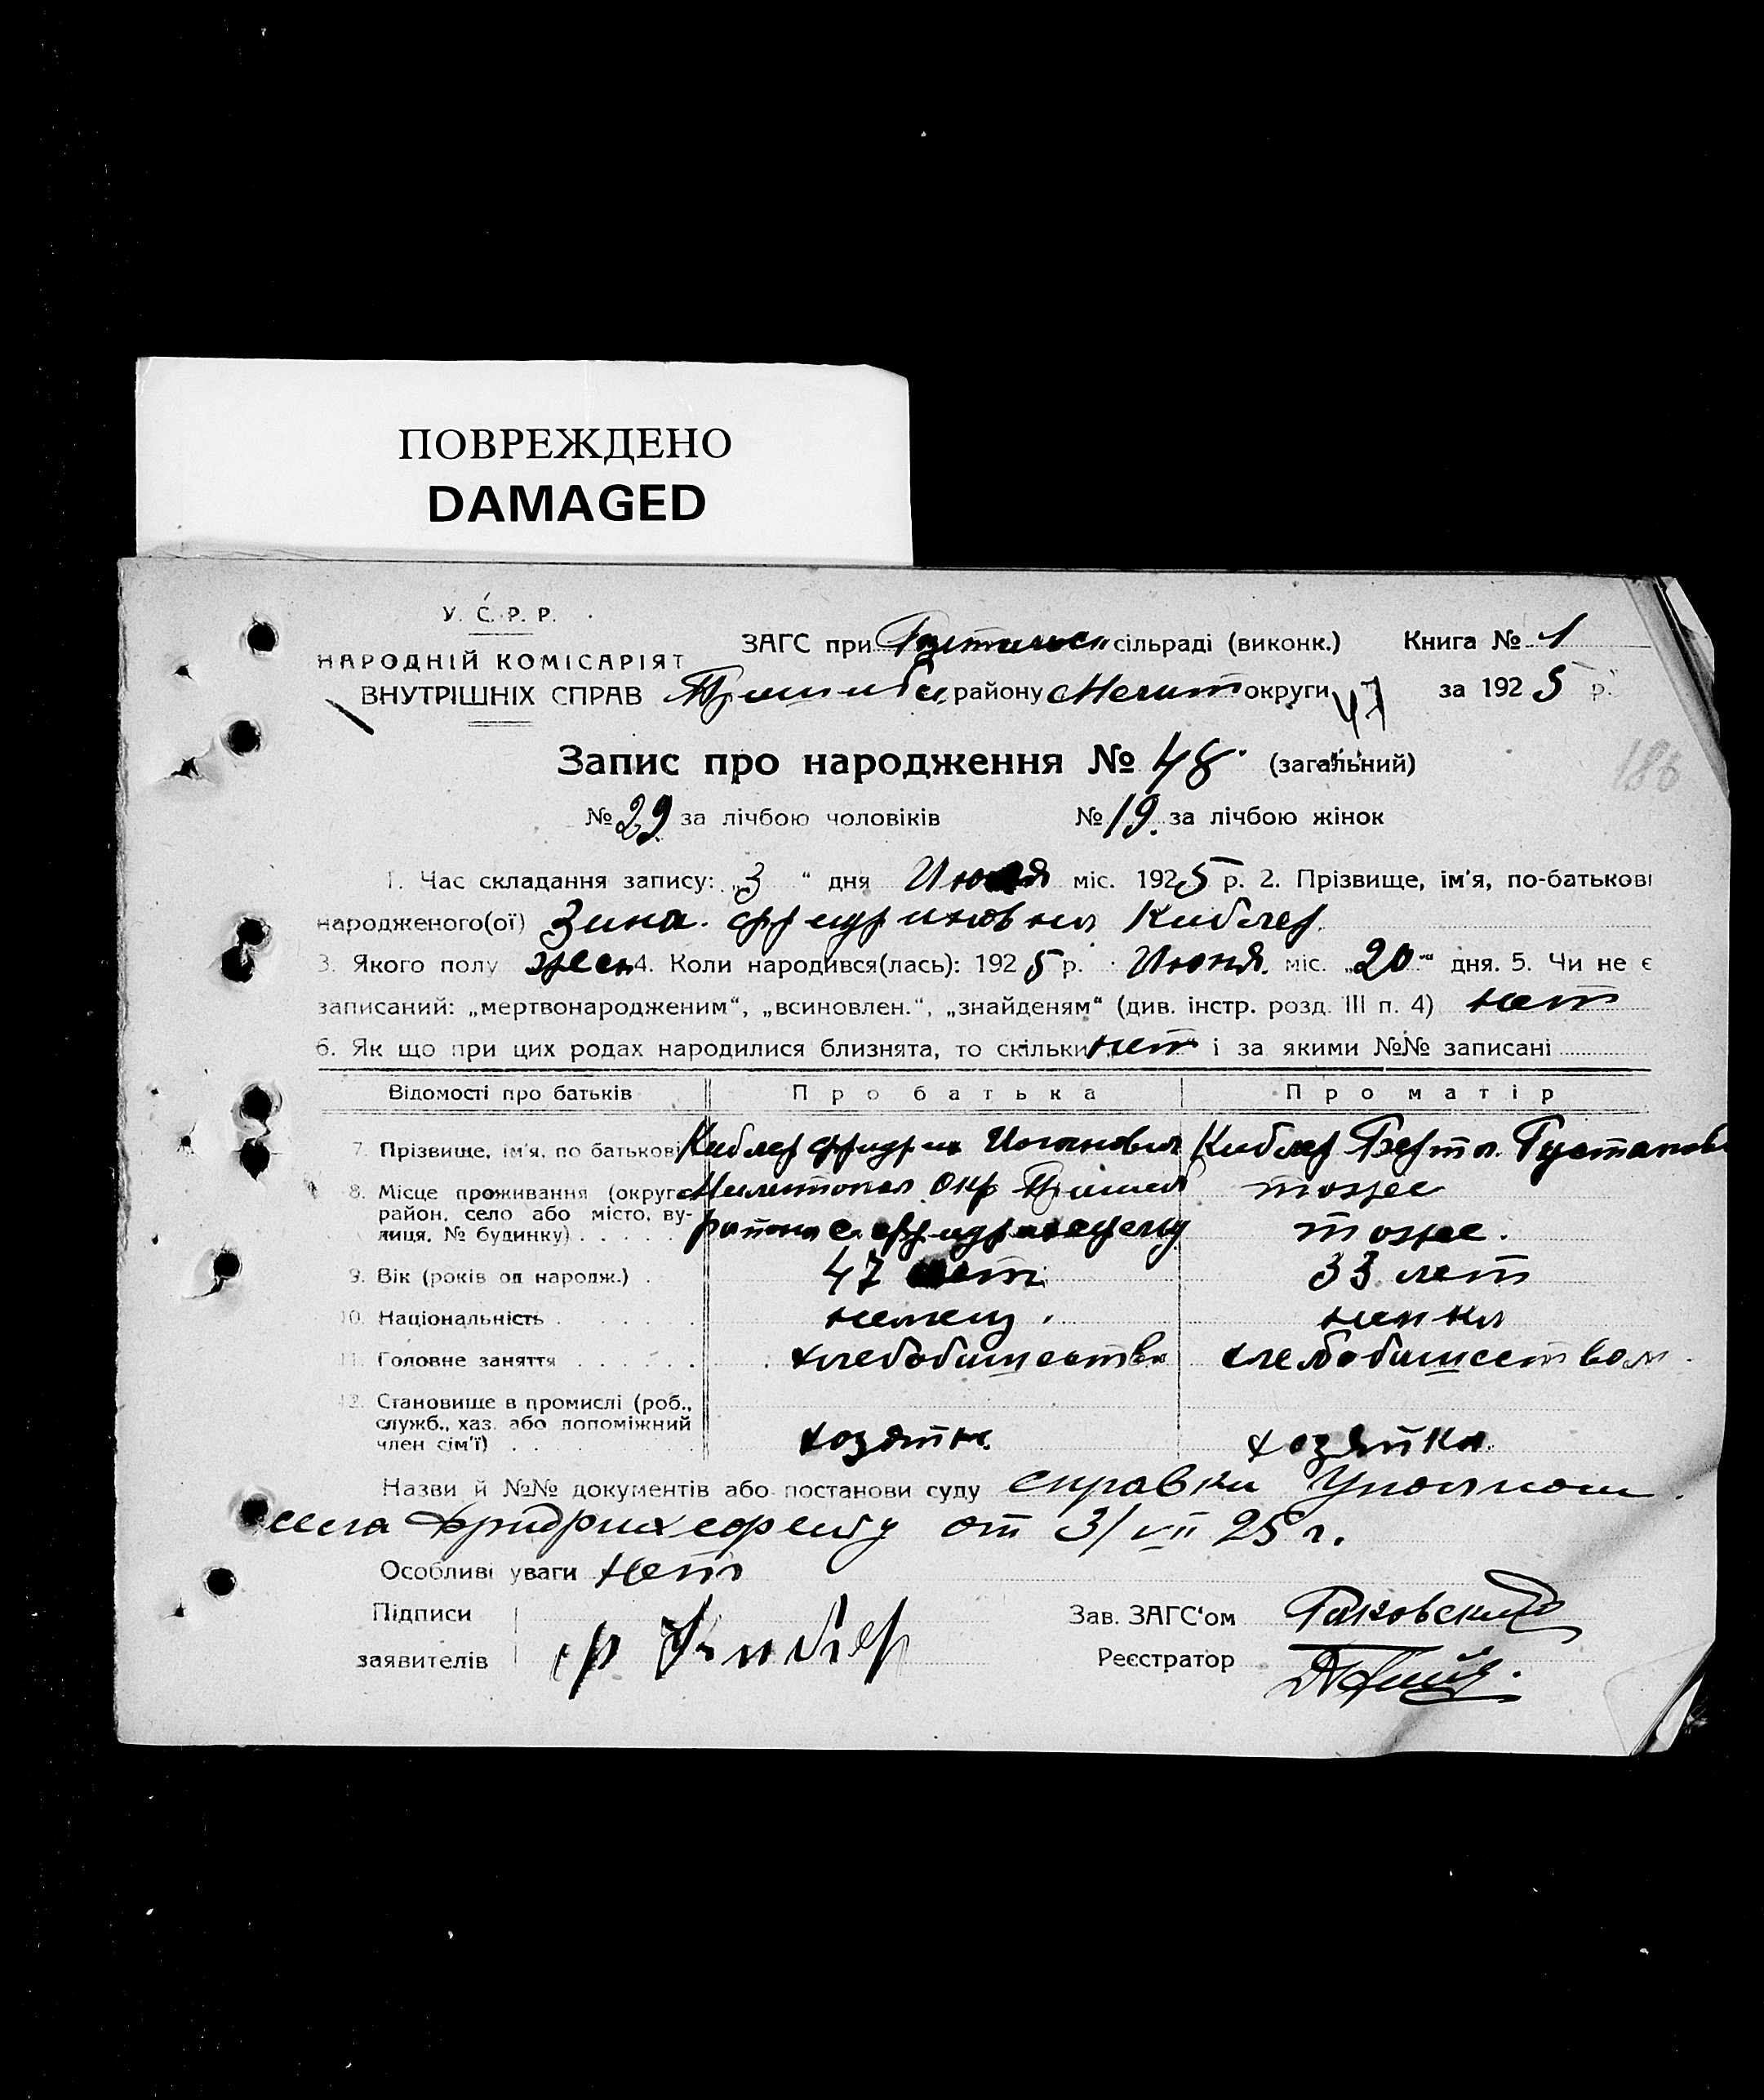 ПОВРЕЖДЕНО
DAMAGED
У. С. Р. Р.
НАРОДНІЙ КОМІСАРІЯТ
ВНУТРІШНІХ СПРАВ
ЗАГС при сільраді (виконк.) Книга № 1
Пришибск. району Мелит округи 47 за 1925 р.
Запис про народження № 48. (загальний)
186
№ 29 за лічбою чоловіків № 19. за лічбою жінок
1. Час складання запису: „3“ дня Июля міс. 1925 р. 2. Прізвище, ім'я, по-батькові
народженого(ої) Зина Фридриховна Киблер.
3. Якого полу жен 4. Коли народився(лась): 1925 р. Июня міс. „20“ дня. 5. Чи не є
записаний: „мертвонародженим“, „всиновлен.“, „знайденям“ (див. інстр. розд. III п. 4) нет
6. Як що при цих родах народилися близнята, то скільки нет і за якими №№ записані
Відомості про батьків Про батька Про матір
7. Прізвище, ім'я, по батькові Киблер Фридрих Иоганович Киблер Берта Густавов
8. Місце проживання (округа, Мелитопол Окр Пришиб тоже
район, село або місто, вулиця, № будинку) района с. Фридрихсфельд тоже.
9. Вік (років од народж.) 47 лет 33 лет
10. Національність немец. немка
11. Головне заняття хлебопашество хлебопашеством
12. Становище в промислі (роб.,
служб., хаз. або допоміжний
член сім'ї) хозяин. хозяйка.
Назви й №№ документів або постанови суду справка Уполном
села Фридрихсфельд от 3/VII 25 г.
Особливі уваги Нет
Підписи Зав. ЗАГС'ом Раковский
заявителів Ф Киблер Реєстратор